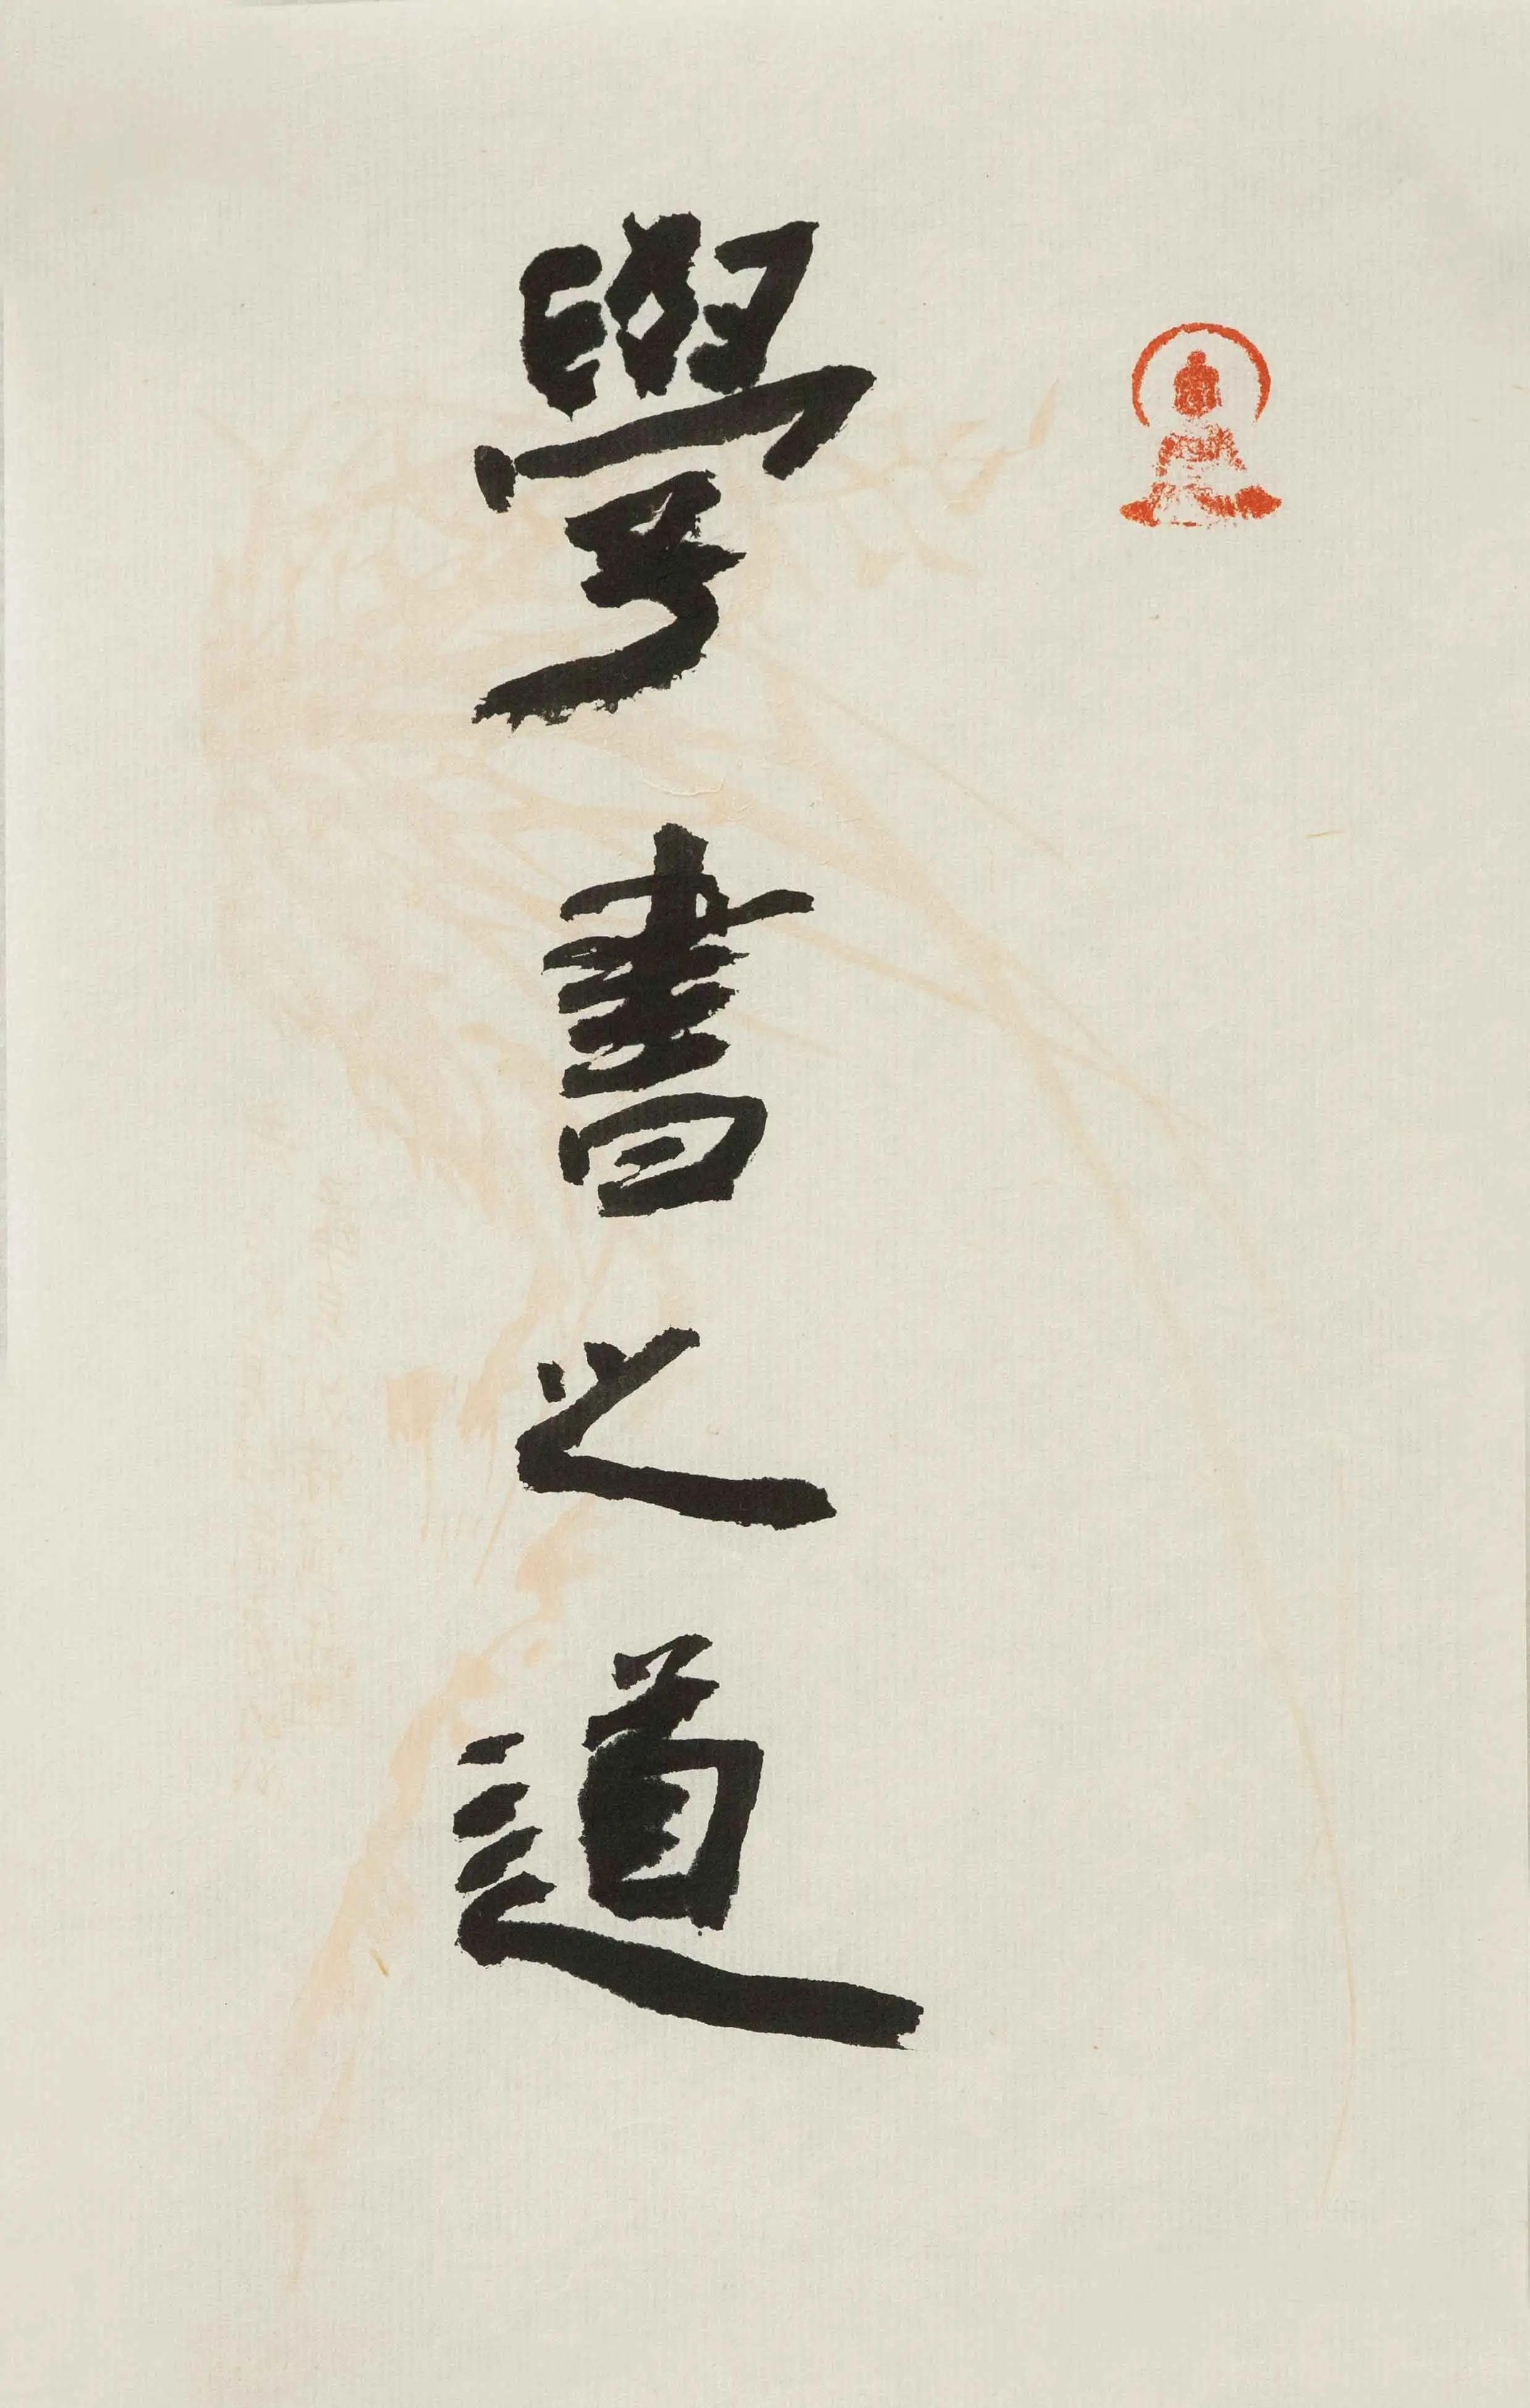 學書之道